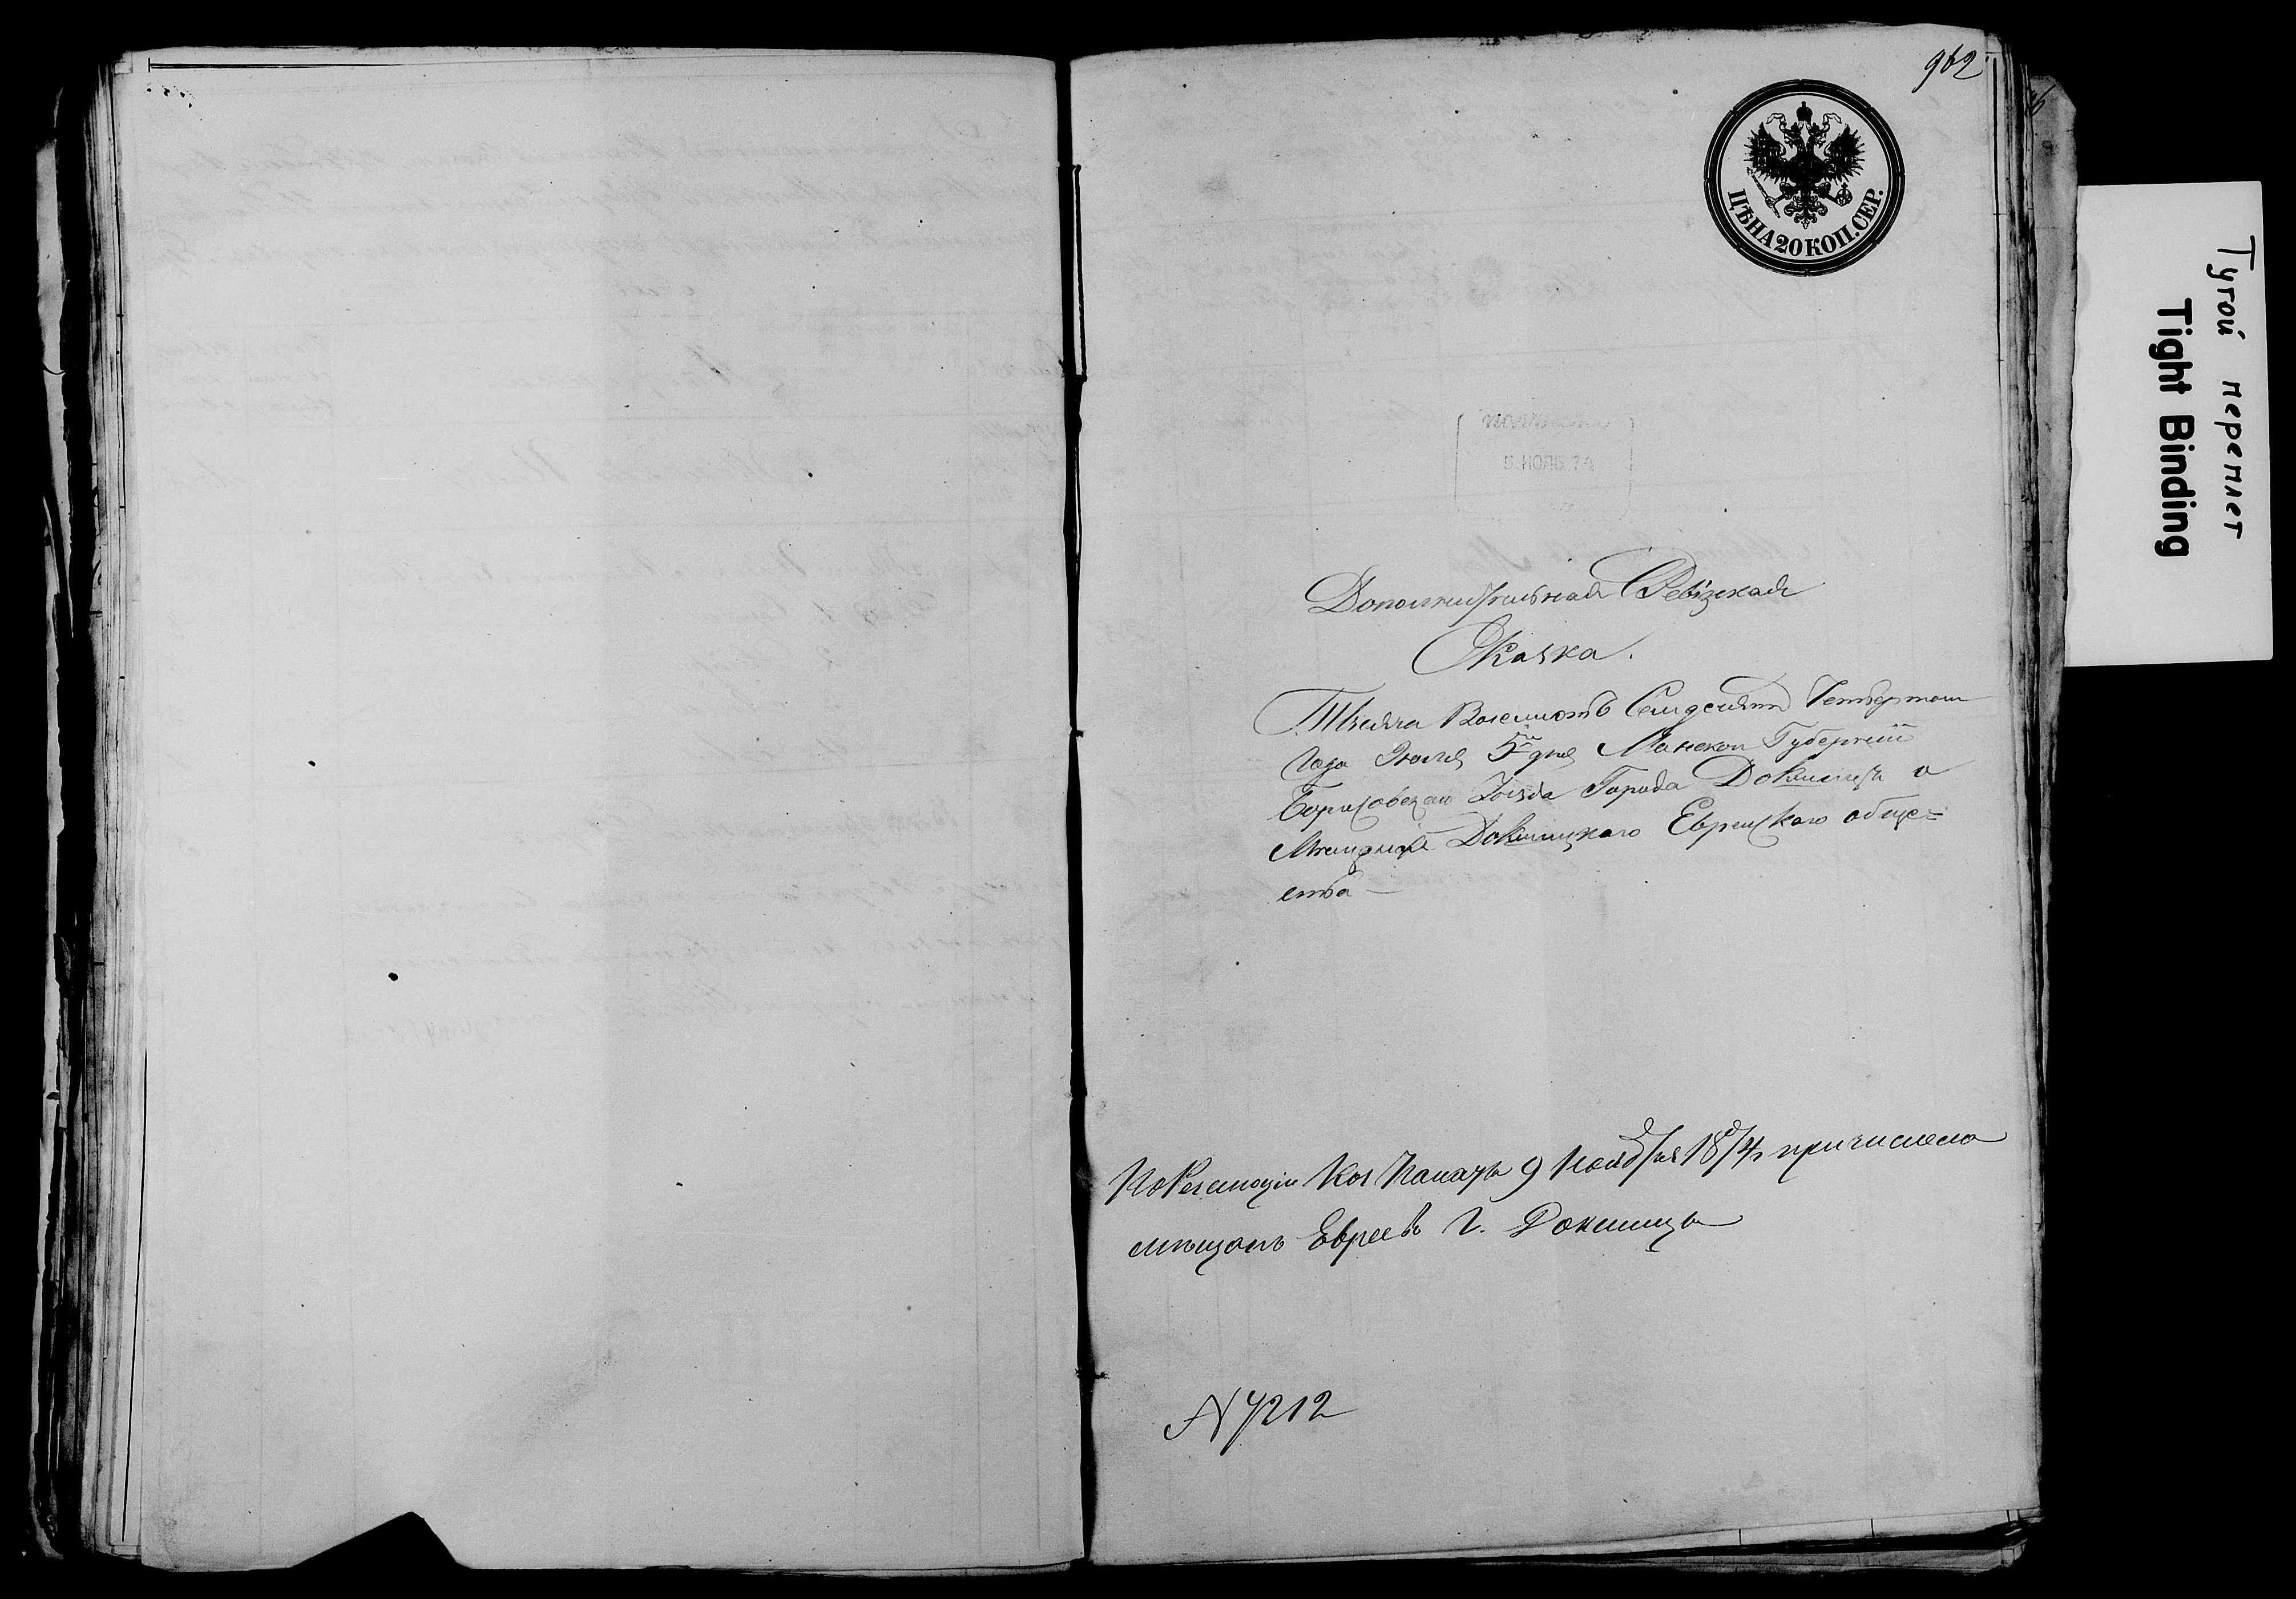 962
ЦѢНА 20 КОП. СЕР.
НОЯБ. 74
Дополнительная Ревизская
Сказка.
Тысяча Восемьсотъ Семдесятъ Четвертаго
Года Июля 5го дня Минской Губернии
Борисовскаго Уѣзда Города Докшицъ о
Мѣщанахъ Докшицкаго Еврейскаго обще=
ства —
По Резолюціи Каз Палаты 9 Ноября 1874 причислено
мѣщанъ Евреевъ Г. Докшицы
N 7212
Тугой переплет
Tight Binding